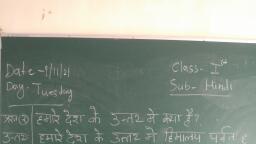 Date - 9/11/21
Class - I st
Day - Tuesday
Sub - Hindi
प्रश्न(3) हमारे देश के उत्तर में क्या है?
उत्तर हमारे देश के उत्तर में हिमालय पर्वत है